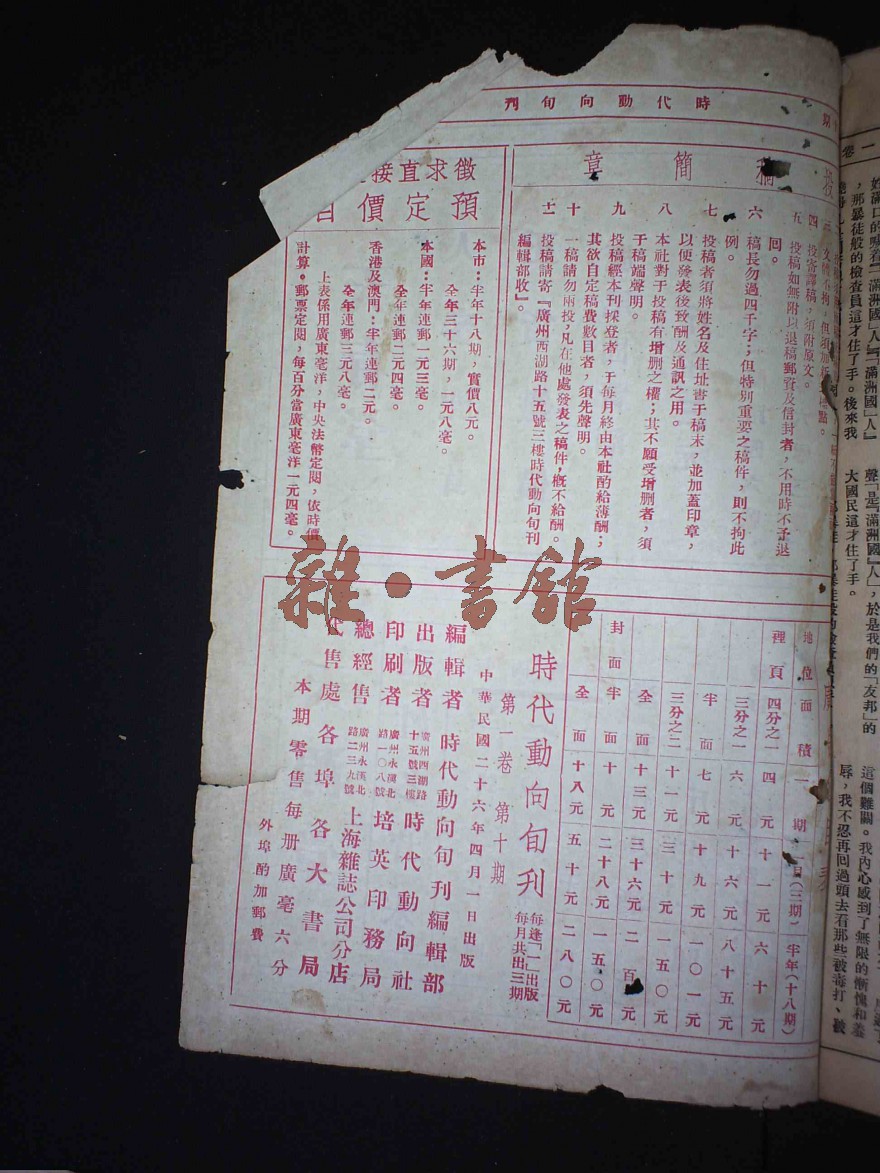 時代動向旬刊
期
投稿簡章
四 投寄譯稿，須附原文。
五 投稿如無附以退稿郵資及信封者，不用時不予退
回。
六 稿長勿過四千字；但特別重要之稿件，則不拘此
例。
七 投稿者須將姓名及住址書于稿末，並加蓋印章，
以便發表後致酬及通訊之用。
八 本社對于投稿有增刪之權；其不願受增刪者，須
于稿端聲明。
九 投稿經本刊採登者，于每月終由本社酌給薄酬；
其欲自定稿費數目者，須先聲明。
十 一稿請勿兩投，凡在他處發表之稿件，概不給酬。
十一 投稿請寄『廣州西湖路十五號三樓時代動向旬刊
編輯部收』。
徵求直接
預定價目
本市：半年十八期，實價八元。
全年三十六期，一元八毫。
本國：半年連郵一元三毫。
全年連郵二元四毫。
香港及澳門：半年連郵二元。
全年連郵三元八毫。
上表係用廣東毫洋，中央法幣定閱，依時價
計算。郵票定閱，每百分當廣東毫洋一元四毫。
地位 面積 一期 一月（三期） 半年（十八期）
裡頁 四分之一 四元 十一元 六十元
三分之一 六元 十六元 八十五元
半面 七元 十九元 一〇一元
三分之二 十一元 三十元 一五〇元
全面 十三元 三十六元 二百元
封面 半面 十元 二十八元 一五〇元
全面 十八元 五十元 二八〇元
時代動向旬刊 每逢「一」出版 每月共出三期
第一卷 第十期
中華民國二十六年四月一日出版
編輯者 時代動向旬刊編輯部
出版者 廣州西湖路十五號三樓 時代動向社
印刷者 廣州永漢北路一〇八號 培英印務局
總經售 廣州永漢北路二三九號 上海雜誌公司分店
代售處 各埠各大書局
本期零售每册廣毫六分
外埠酌加郵費
雜·書館
一卷
姓滿口的喊着「滿洲國」人』『滿洲國』人』
，那暴徒般的檢查員這才住了手。後來我
聲「是『滿洲國』人」，於是我們的「友邦」的
大國民這才住了手。
這個難關。我內心感到了無限的慚愧和羞
辱，我不忍再回過頭去看那些被毒打、被